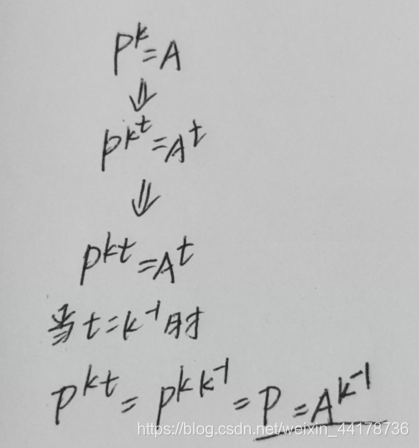 P^k=A
⇓
P^k^t=A^t
⇓
P^kt=A^t
当t=k^-1时
P^kt=P^kk^-1=P=A^k^-1
https://blog.csdn.net/weixin_44178736